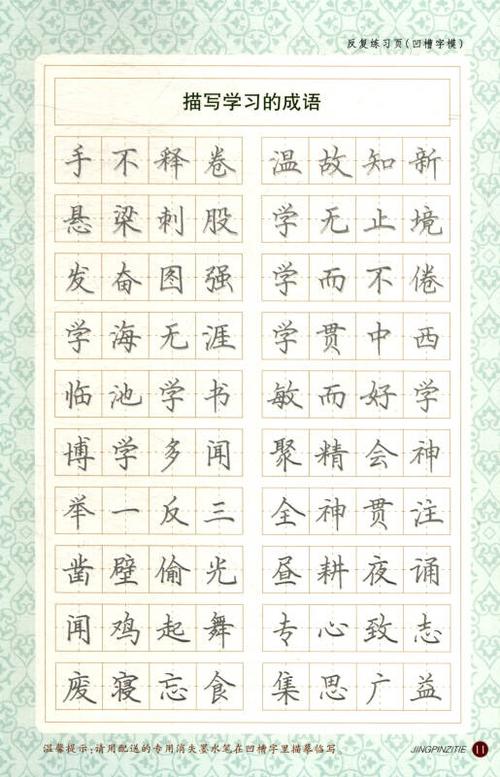 反复练习页(凹槽字模)
描写学习的成语
手不释卷 温故知新
悬梁刺股 学无止境
发奋图强 学而不倦
学海无涯 学贯中西
临池学书 敏而好学
博学多闻 聚精会神
举一反三 全神贯注
凿壁偷光 昼耕夜诵
闻鸡起舞 专心致志
废寝忘食 集思广益
温馨提示:请用配送的专用消失墨水笔在凹槽字里描摹临写。
JINGPINZITIE 11